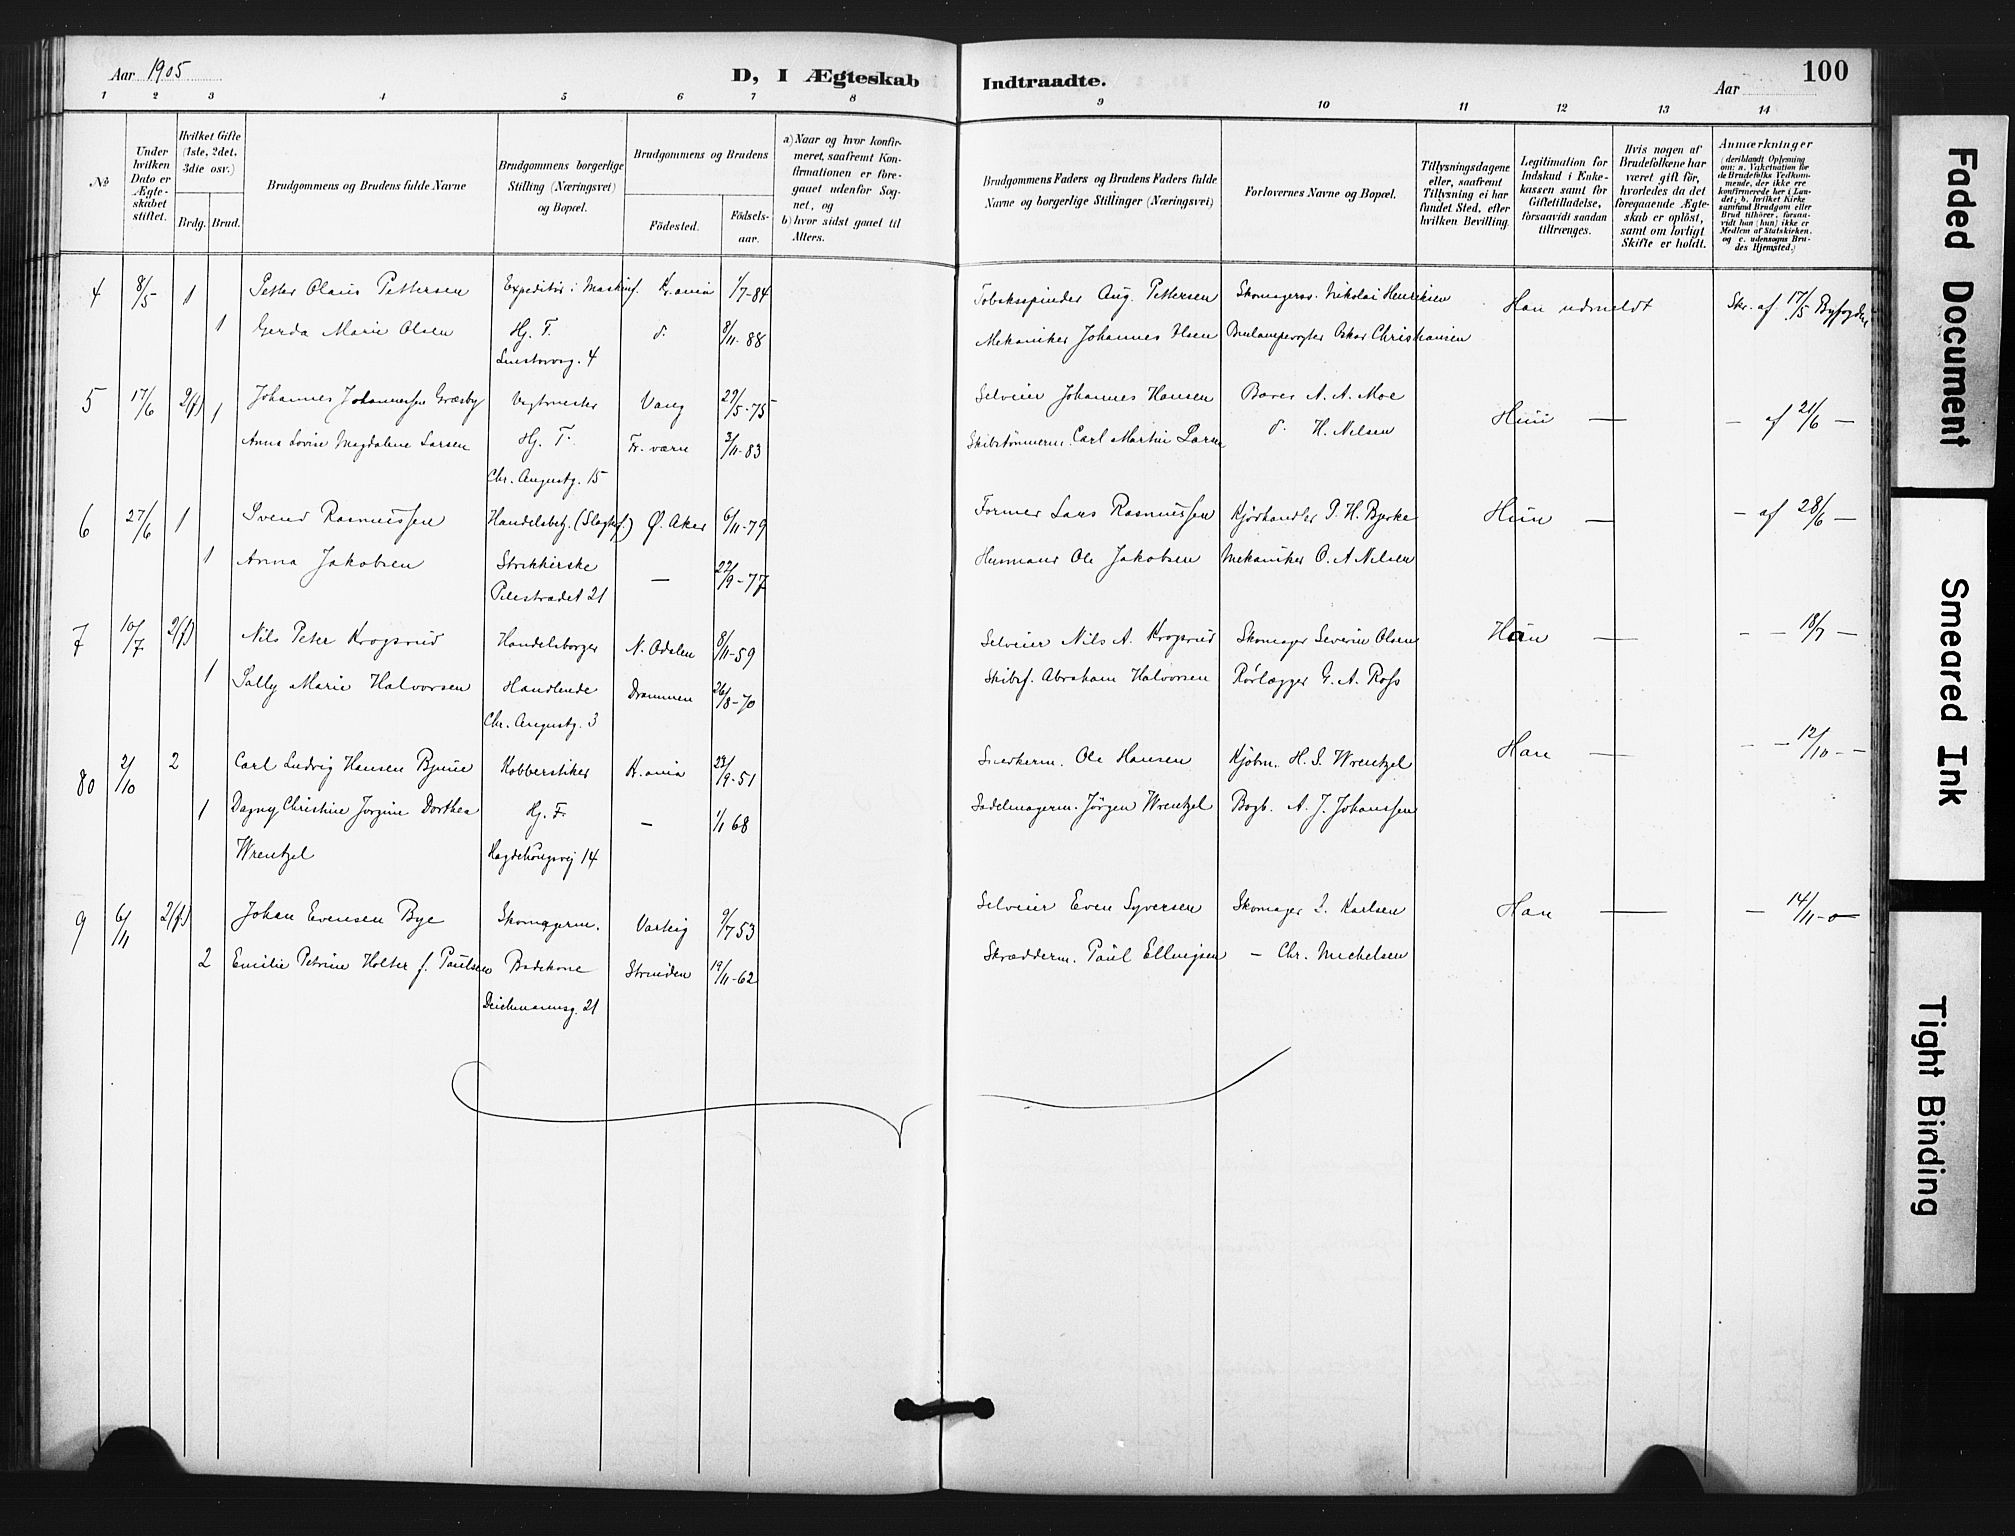 Aar 1905
D, I Ægteskab Indtraadte.
Aar
100
1 2 3 4 5 6 7 8 9 10 11 12 13 14
No
Under hvilken Dato er Ægteskabet stiftet.
Hvilket Gifte (1ste, 2det, 3die osv.)
Brdg. Brud.
Brudgommens og Brudens fulde Navne
Brudgommens borgerlige Stilling (Næringsvei) og Bopæl.
Brudgommens og Brudens
Fødested.
Fødselsaar.
a) Naar og hvor konfirmeret, saafremt Konfirmationen er foregaaet udenfor Sognet, og
b) hvor sidst gaaet til Alters.
Brudgommens Faders og Brudens Faders fulde Navne og borgerlige Stillinger (Næringsvei)
Forlovernes Navne og Bopæl.
Tillysningsdagene eller, saafremt Tillysning ei har fundet Sted, efter hvilken Bevilling.
Legitimation for Indskud i Enkekassen samt for Giftetilladelse, forsaavidt saadan tiltrænges.
Hvis nogen af Brudefolkene har været gift før, hvorledes da det foregaaende Ægteskab er opløst, samt om lovligt Skifte er holdt.
Anmærkninger
4 8/5 1 Petter Olaus Pettersen Expeditør i Maskinf. Kr.ania 1/7-84 Tobaksspinder Aug. Pettersen Skomagersv. Nikolai Henriksen Han udmeldt Skr. af 17/5 Byfogden
1 Gerda Marie Olsen Hj. F. d. 8/11-88 Mekaniker Johannes Olsen Oskar Christiansen
4
5 17/6 2(f) 1 Johannes Johannessen Græsby Vegtmester Vang 29/5-75 Selveier Johannes Hansen Baver A. A. Moe Hun — — af 21/6 —
Anna Lovise Magdalene Larsen Hj. F. Fr. værn 3/11-83 Skibstømmerm. Carl Martin Larsen d. H. Nilsen
Chr. Augustg. 15
6 27/6 1 Svend Rasmussen Handelsbetj. (Slagtef.) Ø. Aker 6/11-79 Former Lars Rasmussen Kjørhandler P. H. Bjerke Hun — — af 28/6 —
1 Anna Jakobsen Strikkerske — 22/9-77 Husmand Ole Jakobsen Mekaniker O. A Nilsen
Pilestrædet 21
7 10/7 2(f) Nils Peter Krogsrud Handelsborger N. Odalen 8/11-59 Selveier Nils A. Krogsrud Skomager Severin Olsen Han — — — 18/7 —
1 Sally Marie Halvorsen Handlende Drammen 26/8-70 Skibsf. Abraham Halvorsen Rørlægger G. A. Ross
Chr. Augustg. 3
80 2/10 2 Carl Ludvig Hansen Bjune Kobberstiker Kr.ania 23/9-51 Snedkerm. Ole Hansen Kjøbm. H. S. Wrentzel Han — — — 12/10 — —
1 Dagny Christine Jørgine Dorthea Hj. F. — 1/1 68 Sadelmagerm. Jørgen Wrentzel Bogb. A. J. Johanssen
Wrentzel 14
9 6/11 2(f.) Johan Evensen Bye Skomagerm. Varteig 9/7 53 Selveier Even Syversen Skomager L. Karlsen Han — — 14/11-0
2 Emilie Petrine Holter f. Paulsen Badekone Strinden 19/11-62 Skrædderm. Paul Ellingsen — Chr. Michelsen
Deichmannsg. 21
Faded Document
Smeared Ink
Tight Binding